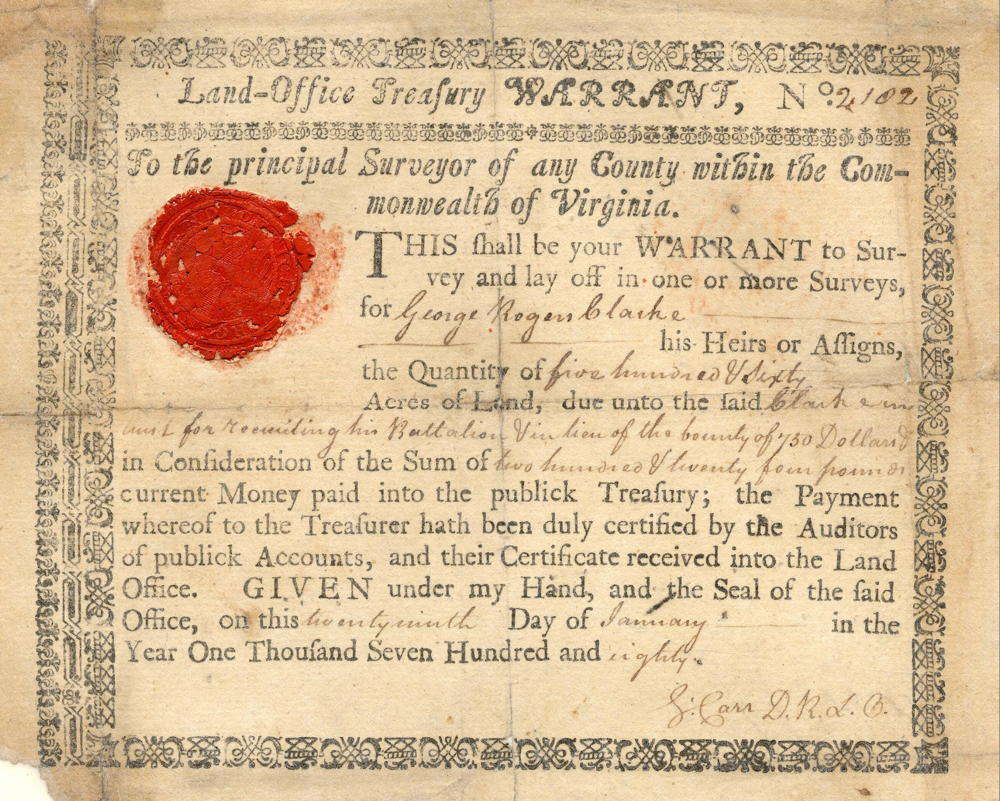 Land-Office Treaſury WARRANT, No. 2182
To the principal Surveyor of any County within the Com-
monwealth of Virginia.
THIS ſhall be your WARRANT to Sur-
vey and lay off in one or more Surveys,
for George Rogers Clarke
his Heirs or Aſſigns,
the Quantity of five hundred & Sixty
Acres of Land, due unto the ſaid Clark
for recruiting his Battalion & in lieu of the bounty of 750 Dollars &
in Conſideration of the Sum of two hundred & twenty four pounds
current Money paid into the publick Treaſury; the Payment
whereof to the Treaſurer hath been duly certified by the Auditors
of publick Accounts, and their Certificate received into the Land
Office. GIVEN under my Hand, and the Seal of the ſaid
Office, on this twenty ninth Day of January in the
Year One Thouſand Seven Hundred and eighty.
Carr D. R. L. O.